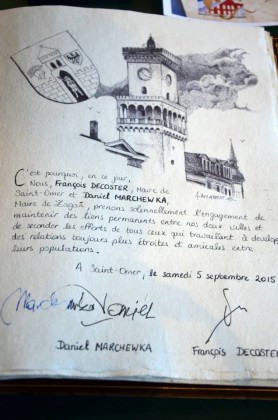 C'est pourquoi, en ce jour,
Nous, François DECOSTER, Maire de
Saint-Omer et Daniel MARCHEWKA,
Maire de Żagań, prenons solennellement l'engagement de
maintenir des liens permanents entre nos deux villes et
de seconder les efforts de tous ceux qui travaillent à développer
des relations toujours plus étroites et amicales entre
leurs populations.
A Saint-Omer, le samedi 5 septembre 2015
Marchewka Daniel
Daniel MARCHEWKA
François DECOSTER